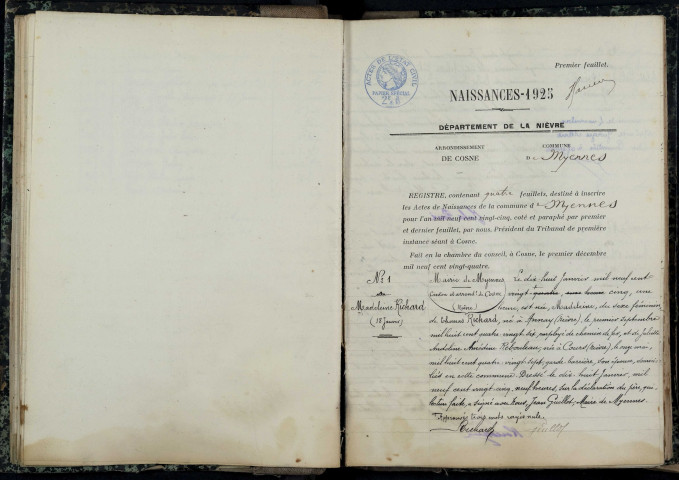 Premier feuillet.
ACTES DE L'ETAT CIVIL
PAPIER SPECIAL
NAISSANCES-1925
DÉPARTEMENT DE LA NIÈVRE
ARRONDISSEMENT
DE COSNE
COMMUNE
De Myennes
REGISTRE, contenant quatre feuillets, destiné à inscrire
les Actes de Naissances de la commune de Myennes
pour l'an mil neuf cent vingt-cinq, coté et paraphé par premier
et dernier feuillet, par nous, Président du Tribunal de première
instance séant à Cosne.
Fait en la chambre du conseil, à Cosne, le premier décembre
mil neuf cent vingt-quatre.
No 1
Madeleine Richard
(18 Janvier)
Mairie de Myennes
Canton et arrond. de Cosne
(Nièvre)
Le dix huit Janvier mil neuf cent
vingt cinq, une
heure, est née, Madeleine, du sexe féminin
de Richard, né à Annay (Nièvre), le premier septembre
mil huit cent quatre vingt dix, employé de chemin de fer, et de Juliette
née à Cours (Nièvre), le onze mai,
mil huit cent quatre vingt sept, garde barrière, son épouse, domici-
liés en cette commune. Dressé le dix huit Janvier, mil
neuf cent vingt cinq, neuf heures, sur la déclaration du père, qui,
lecture faite, a signé avec Nous, Jean Guillot, Maire de Myennes.
trois mots rayés nuls.
Richard Guillot